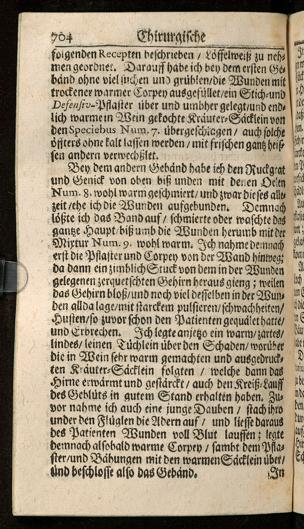 704 Chirurgische
folgenden Recepten beschrieben / Löffelweiß zu neh-
men geordnet. Darauff habe ich bey dem ersten Ge-
bänd ohne viel suchen und grüblen/die Wunden mit
trockener warmer Corpey ausgefüllet/ein Stich-und
Defensiv-Pflaster über und umbher gelegt/und end-
lich warme in Wein gekochte Kräuter-Säcklein von
den Speciebus Num. 7. übergeschlagen / auch solche
öffters ohne kalt lassen werden / mit frischen gantz heis-
sen andern verwechßlet.
Bey dem andern Gebänd habe ich den Ruckgrat
und Genick von oben biß unden mit denen Oelen
Num. 8. wohl warm geschmiert, und zwar dieses alle-
zeit / ehe ich die Wunden aufgebunden. Demnach
lößte ich das Band auf / schmierte oder waschte das
gantze Haupt/biß umb die Wunden herumb mit der
Mixtur Num. 9. wohl warm. Ich nahme demnach
erst die Pflaster und Corpey von der Wand hinweg;
da dann ein zimblich Stuck von dem in der Wunden
gelegenen zerquetschten Gehirn heraus gieng; weilen
das Gehirn bloß/und noch viel desselben in der Wun-
den allda lage/mit starckem pulsieren/schwachheiten/
Husten/so zuvor schon den Patienten gequälet hatte/
und Erbrechen. Ich legte anjetzo ein warm/zartes/
lindes/ leinen Tüchlein über den Schaden/worüber
die in Wein sehr warm gemachten und ausgedruck-
ten Kräuter-Säcklein folgten / welche dann das
Hirne erwärmt und gestärckt / auch den Kreiß-Lauff
des Geblüts in gutem Stand erhalten haben. Zu-
vor nahme ich auch eine junge Dauben / stach ihro
unter den Flüglen die Adern auf / und liesse daraus
des Patienten Wunden voll Blut lauffen; legte
demnach alsobald warme Corpey / sambt dem Pfla-
ster/und Bähungen mit den warmen Säcklein über/
und beschlosse also das Gebänd. Jn